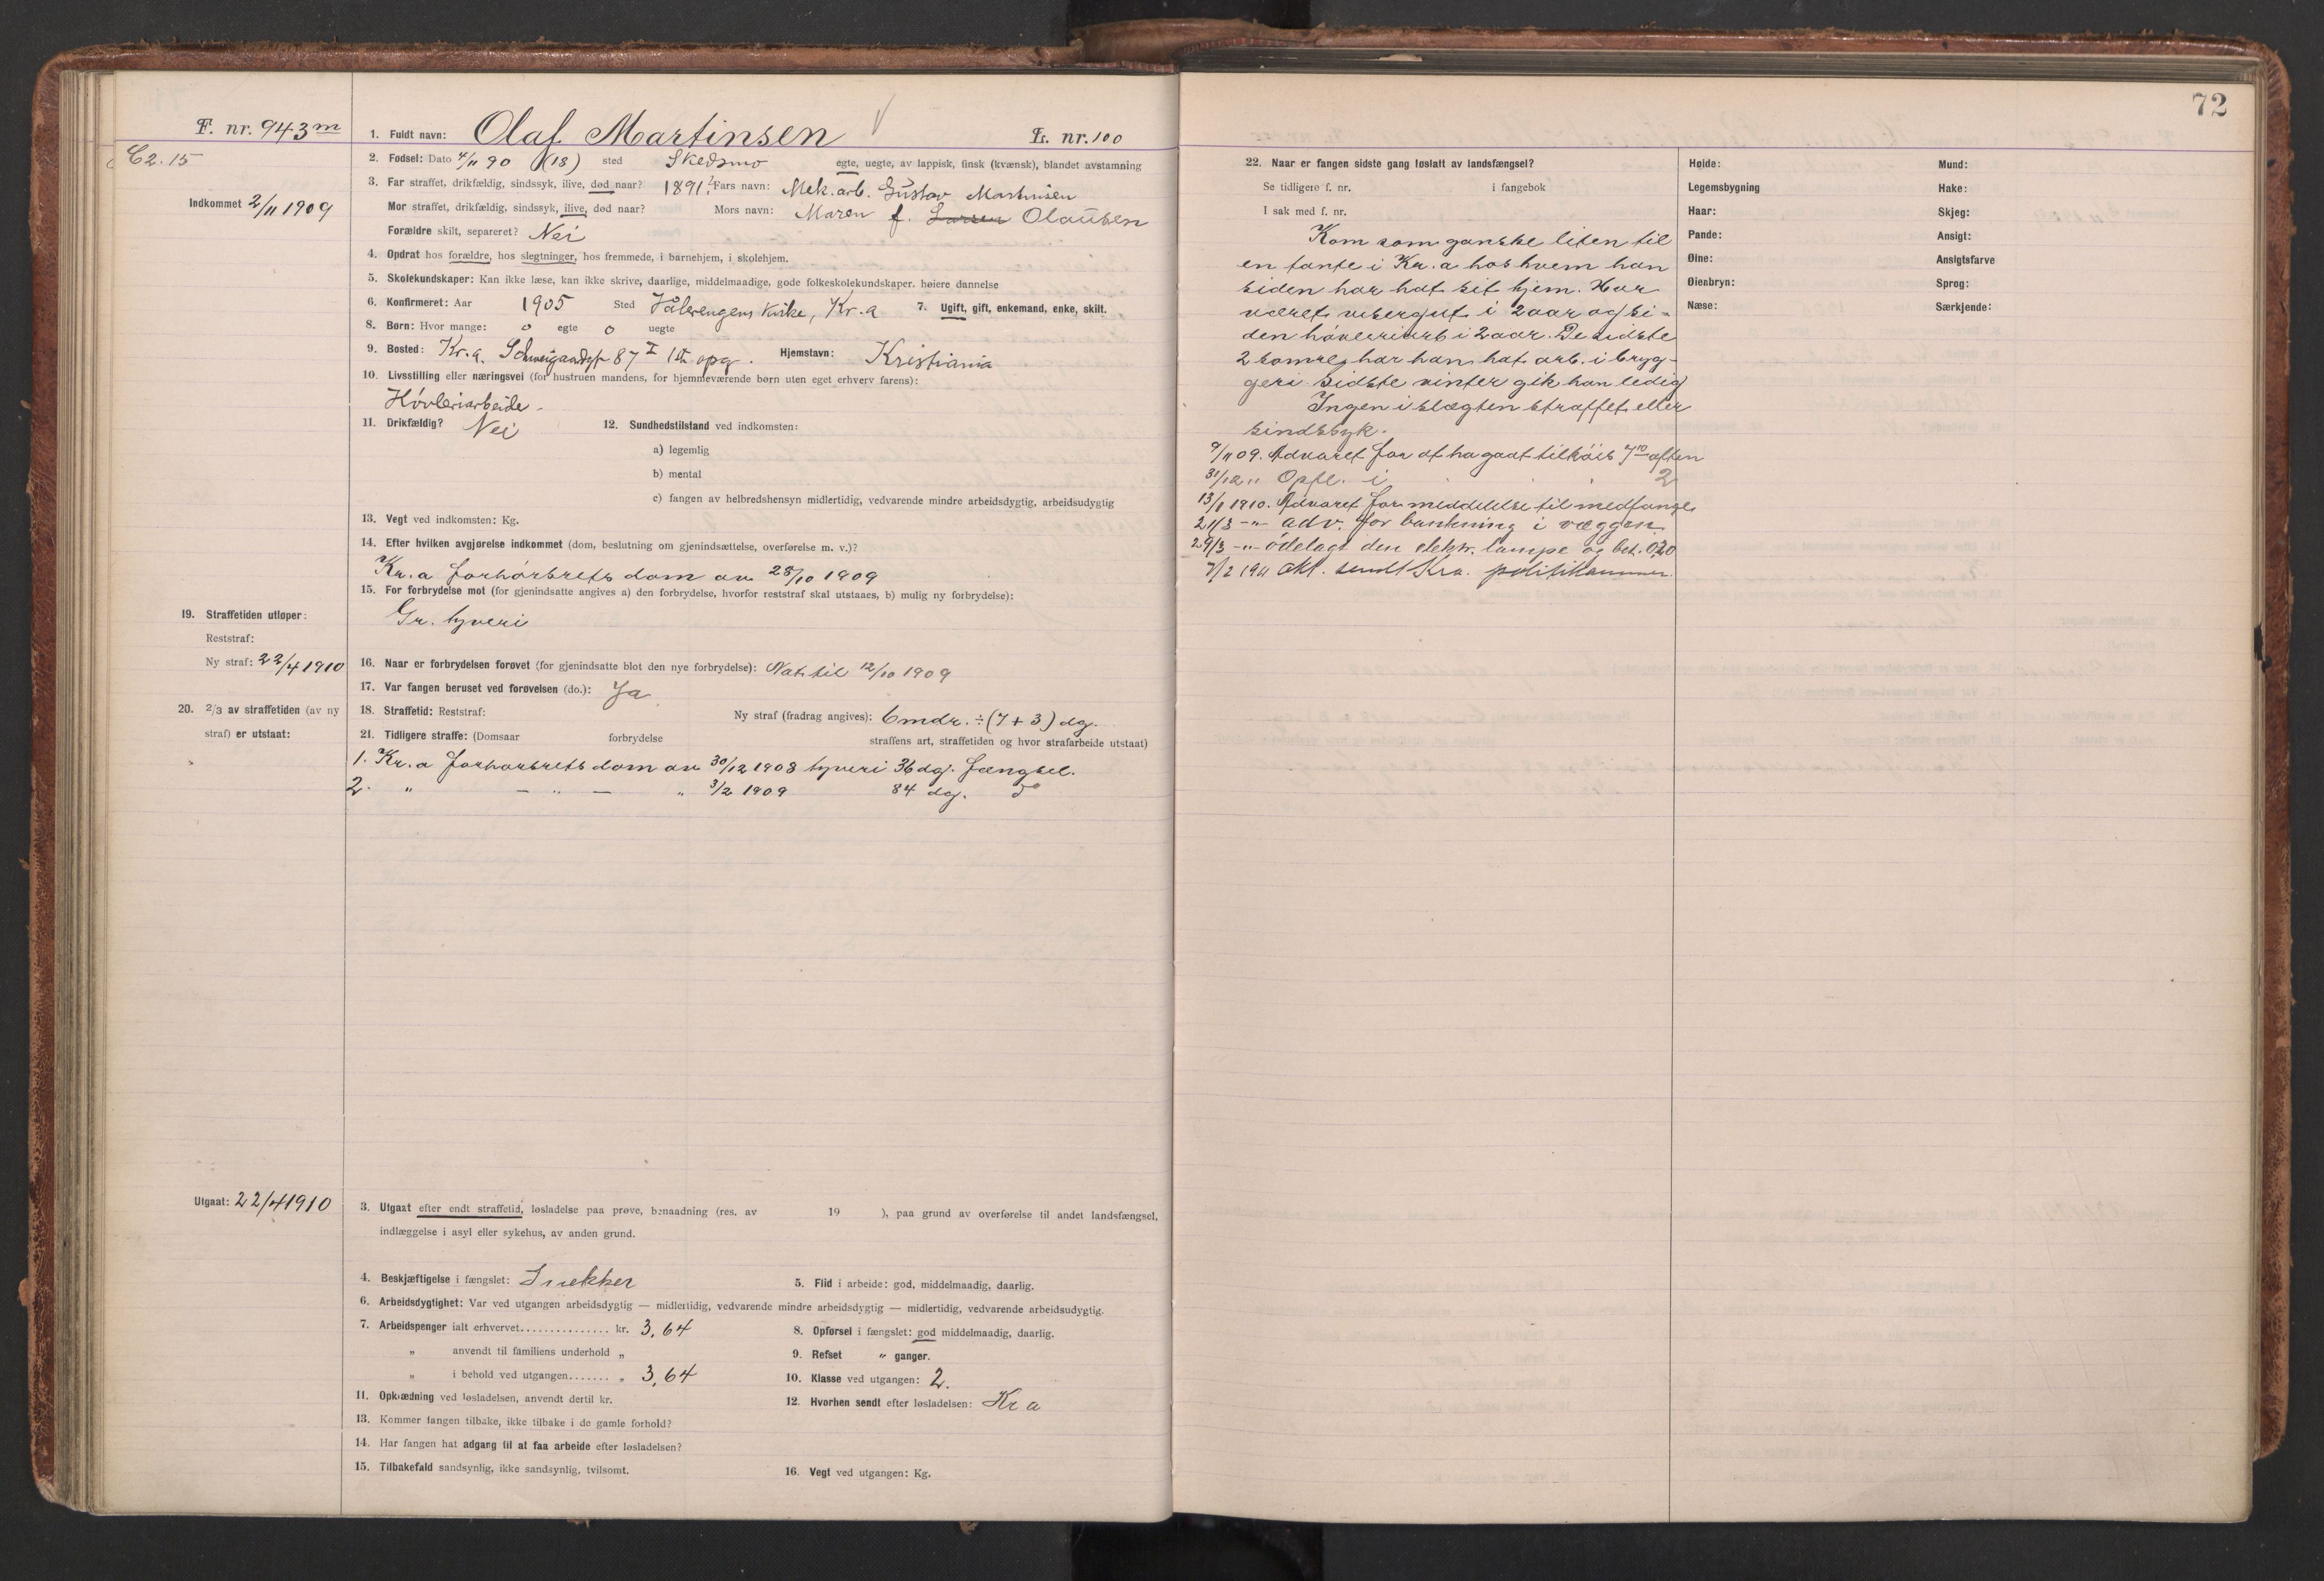 F. nr. 943 m
C2. 15
Indkommet 2/11 1909
19. Straffetiden utløper:
Reststraf:
Ny straf: 22/4 1910
20. 2/3 av straffetiden (av ny
straf) er utstaat:
Utgaat: 22/4 1910
1. Fuldt navn: Olaf Martinsen L. nr. 100
2. Fødsel: Dato 4/11 90 (18) sted Skedsmo egte, uegte, av lappisk, finsk (kvænsk), blandet avstamning
3. Far straffet, drikfældig, sindssyk, ilive, død naar? 1891? Fars navn: Mek. arb. Gustav Martinsen
Mor straffet, drikfældig, sindssyk, ilive, død naar? Mors navn: Maren f. Larsen Olausen
Forældre skilt, separeret? Nei
4. Opdrat hos forældre, hos slegtninger, hos fremmede, i barnehjem, i skolehjem.
5. Skolekundskaper: Kan ikke læse, kan ikke skrive, daarlige, middelmaadige, gode folkeskolekundskaper. høiere dannelse
6. Konfirmeret: Aar 1905 Sted Vålerengens Kirke, Kr.a 7. Ugift, gift, enkemand, enke, skilt.
8. Børn: Hvor mange: 0 egte 0 uegte
9. Bosted: Kr.a. Schweigaardsgt 87 I 1ste opg. Hjemstavn: Kristiania
10. Livsstilling eller næringsvei (for hustruen mandens, for hjemmeværende børn uten eget erhverv farens):
Høvleriarbeide.
11. Drikfældig? Nei 12. Sundhedstilstand ved indkomsten:
a) legemlig
b) mental
c) fangen av helbredshensyn midlertidig, vedvarende mindre arbeidsdygtig, arbeidsudygtig
13. Vegt ved indkomsten: Kg.
14. Efter hvilken avgjørelse indkommet (dom, beslutning om gjenindsættelse, overførelse m. v.)?
Kr.a forhørsrets dom av 28/10 1909
15. For forbrydelse mot (for gjenindsatte angives a) den forbrydelse, hvorfor reststraf skal utstaaes, b) mulig ny forbrydelse):
Gr. tyveri
16. Naar er forbrydelsen forøvet (for gjenindsatte blot den nye forbrydelse): Nat til 12/10 1909
17. Var fangen beruset ved forøvelsen (do.): Ja
18. Straffetid: Reststraf: Ny straf (fradrag angives): 6 mdr. ÷ (7 + 3) dg.
21. Tidligere straffe: (Domsaar forbrydelse straffens art, straffetiden og hvor strafarbeide utstaat)
1. Kr.a forhørsrets dom av 30/12 1908 tyveri 36 dg. fængsel.
2. " — " — " 3/2 1909 84 dg. do
3. Utgaat efter endt straffetid, løsladelse paa prøve, benaadning (res. av 19 ), paa grund av overførelse til andet landsfængsel,
indlæggelse i asyl eller sykehus, av anden grund.
4. Beskjæftigelse i fængslet: Snekker 5. Flid i arbeide: god, middelmaadig, daarlig.
6. Arbeidsdygtighet: Var ved utgangen arbeidsdygtig — midlertidig, vedvarende mindre arbeidsdygtig — midlertidig, vedvarende arbeidsudygtig.
7. Arbeidspenger ialt erhvervet............... kr. 3,64 8. Opførsel i fængslet: god middelmaadig, daarlig.
" anvendt til familiens underhold " 9. Refset " ganger.
" i behold ved utgangen....... " 3,64 10. Klasse ved utgangen: 2.
11. Opklædning ved løsladelsen, anvendt dertil kr. 12. Hvorhen sendt efter løsladelsen: Kra
13. Kommer fangen tilbake, ikke tilbake i de gamle forhold?
14. Har fangen hat adgang til at faa arbeide efter løsladelsen?
15. Tilbakefald sandsynlig, ikke sandsynlig, tvilsomt. 16. Vegt ved utgangen: Kg.
72
22. Naar er fangen sidste gang løslatt av landsfængsel?
Se tidligere f. nr. i fangebok
I sak med f. nr.
Kom som ganske liten til
en tante i Kr.a hos hvem han
siden har hat sit hjem. Har
været visergut i 2 aar og si-
den høvleriarb i 2 aar. De sidste
2 somre har han hat arb. i bryg-
geri. Sidste vinter gik han ledig
Ingen i slægten straffet eller
sindssyk.
9/11 09. Advaret for at ha gaat tilkøis 7 10 aften
31/12 " Opfl. i 2
13/1 1910. Advaret for meddelelse til medfange
21/3 -"- adv. for bankning i væggen
29/3 -"- ødelagt den elektr. lampe og bet. 0,20
7/2 1911 Akt. sendt Kra. politikammer.
Høide:
Legemsbygning
Haar:
Pande:
Øine:
Øienbryn:
Næse:
Mund:
Hake:
Skjeg:
Ansigt:
Ansigtsfarve
Sprog:
Særkjende: